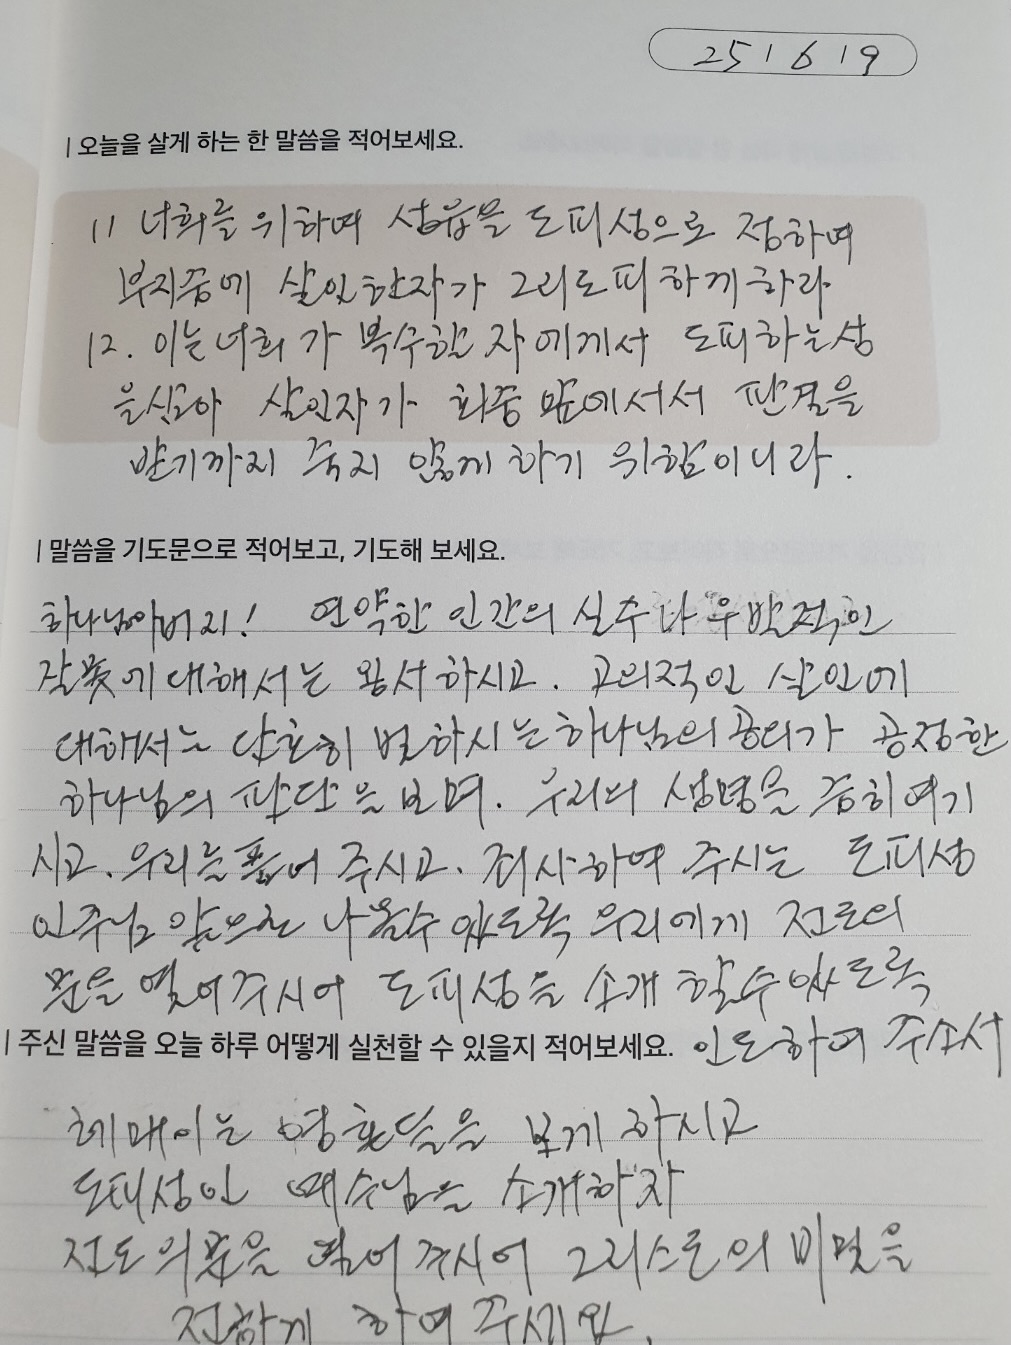 25 / 6 / 19
| 오늘을 살게 하는 한 말씀을 적어보세요.
11 너희를 위하여 성읍을 도피성으로 정하여
부지중에 살인한자가 그리로 피하게 하라
12. 이는 너희가 복수할 자에게서 도피하는성
을삼아 살인자가 회중 앞에서서 판결을
받기까지 죽지 않게 하기 위함이니라.
| 말씀을 기도문으로 적어보고, 기도해 보세요.
하나님아버지! 연약한 인간의 실수나 우발적인
잘못에 대해서는 용서하시고. 고의적인 살인에
대해서는 단호히 벌하시는 하나님의 공의가 공정한
하나님의 판단을 보며. 우리의 생명을 중히여기
시고. 우리를 품어 주시고. 하여 주시는 도피성
인주님 앞으로 나올수 있도록 우리에게 전도의
문을 열어주시어 도피성을 소개 할수있도록
| 주신 말씀을 오늘 하루 어떻게 실천할 수 있을지 적어보세요. 인도하여 주소서
헤매이는 영혼들을 보게 하시고
도피성인 예수님을 소개하자
전도의문을 열어 주시어 그리스도의 비밀을
전하게 하여 주세요.